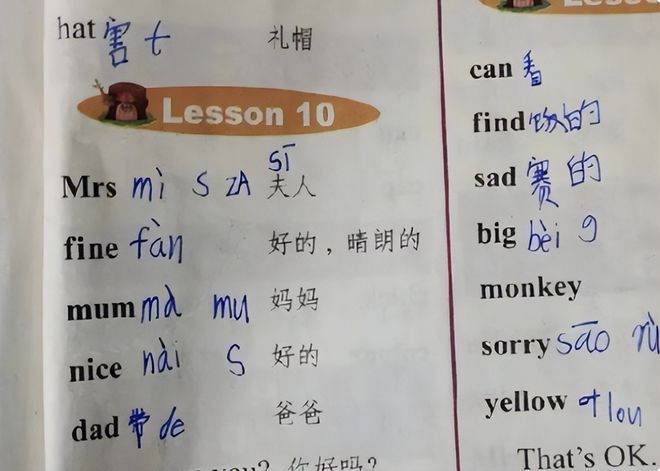 hat 害 t 礼帽
Lesson 10
Mrs mì S ZA sī 夫人
fine fàn 好的，晴朗的
mum mà mu 妈妈
nice nài S 好的
dad 带 de 爸爸
你好吗?
can 看
find 的
sad 赛 的
big bèi g
monkey
sorry sāo
yellow 叶 lou
That's OK.